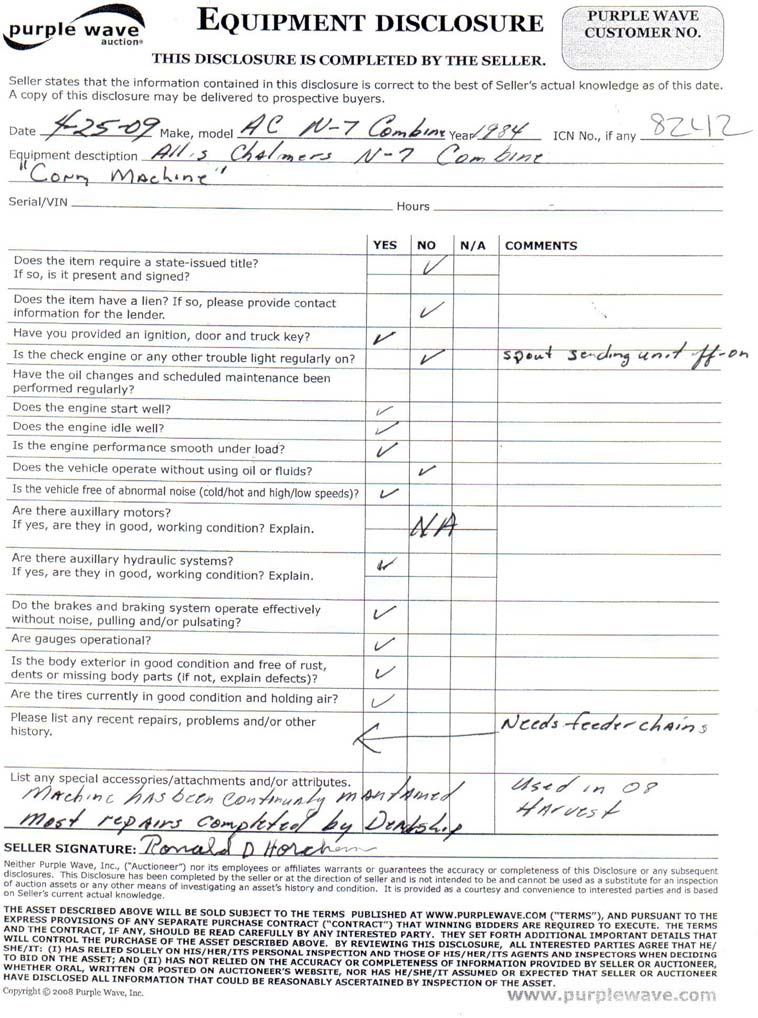 purple wave
auction®
EQUIPMENT DISCLOSURE
PURPLE WAVE
CUSTOMER NO.
THIS DISCLOSURE IS COMPLETED BY THE SELLER.
Seller states that the information contained in this disclosure is correct to the best of Seller's actual knowledge as of this date.
A copy of this disclosure may be delivered to prospective buyers.
Date 4-25-09 Make, model AC N-7 Combine Year 1984 ICN No., if any 8242
Equipment desctiption Allis Chalmers N-7 Combine
"Corn Machine"
Serial/VIN Hours
YES NO N/A COMMENTS
Does the item require a state-issued title? ✓
If so, is it present and signed?
Does the item have a lien? If so, please provide contact
information for the lender. ✓
Have you provided an ignition, door and truck key? ✓
Is the check engine or any other trouble light regularly on? ✓ spout sending unit off-on
Have the oil changes and scheduled maintenance been
performed regularly?
Does the engine start well? ✓
Does the engine idle well? ✓
Is the engine performance smooth under load? ✓
Does the vehicle operate without using oil or fluids? ✓
Is the vehicle free of abnormal noise (cold/hot and high/low speeds)? ✓
Are there auxillary motors?
If yes, are they in good, working condition? Explain. NA
Are there auxillary hydraulic systems? ✓
If yes, are they in good, working condition? Explain.
Do the brakes and braking system operate effectively
without noise, pulling and/or pulsating? ✓
Are gauges operational? ✓
Is the body exterior in good condition and free of rust,
dents or missing body parts (if not, explain defects)? ✓
Are the tires currently in good condition and holding air? ✓
Please list any recent repairs, problems and/or other Needs feeder chains
history.
List any special accessories/attachments and/or attributes. Used in 08
Machine has been continuly mantained Harvest
most repairs completed by Dealship
SELLER SIGNATURE: Ronald D Horchem
Neither Purple Wave, Inc., ("Auctioneer") nor its employees or affiliates warrants or guarantees the accuracy or completeness of this Disclosure or any subsequent
disclosures. This Disclosure has been completed by the seller or at the direction of seller and is not intended to be and cannot be used as a substitute for an inspection
of auction assets or any other means of investigating an asset's history and condition. It is provided as a courtesy and convenience to interested parties and is based
on Seller's current actual knowledge.
THE ASSET DESCRIBED ABOVE WILL BE SOLD SUBJECT TO THE TERMS PUBLISHED AT WWW.PURPLEWAVE.COM ("TERMS"), AND PURSUANT TO THE
EXPRESS PROVISIONS OF ANY SEPARATE PURCHASE CONTRACT ("CONTRACT") THAT WINNING BIDDERS ARE REQUIRED TO EXECUTE. THE TERMS
AND THE CONTRACT, IF ANY, SHOULD BE READ CAREFULLY BY ANY INTERESTED PARTY. THEY SET FORTH ADDITIONAL IMPORTANT DETAILS THAT
WILL CONTROL THE PURCHASE OF THE ASSET DESCRIBED ABOVE. BY REVIEWING THIS DISCLOSURE, ALL INTERESTED PARTIES AGREE THAT HE/
SHE/IT: (I) HAS RELIED SOLELY ON HIS/HER/ITS PERSONAL INSPECTION AND THOSE OF HIS/HER/ITS AGENTS AND INSPECTORS WHEN DECIDING
TO BID ON THE ASSET; AND (II) HAS NOT RELIED ON THE ACCURACY OR COMPLETENESS OF INFORMATION PROVIDED BY SELLER OR AUCTIONEER,
WHETHER ORAL, WRITTEN OR POSTED ON AUCTIONEER'S WEBSITE, NOR HAS HE/SHE/IT ASSUMED OR EXPECTED THAT SELLER OR AUCTIONEER
HAVE DISCLOSED ALL INFORMATION THAT COULD BE REASONABLY ASCERTAINED BY INSPECTION OF THE ASSET.
Copyright © 2008 Purple Wave, Inc.
www.purplewave.com